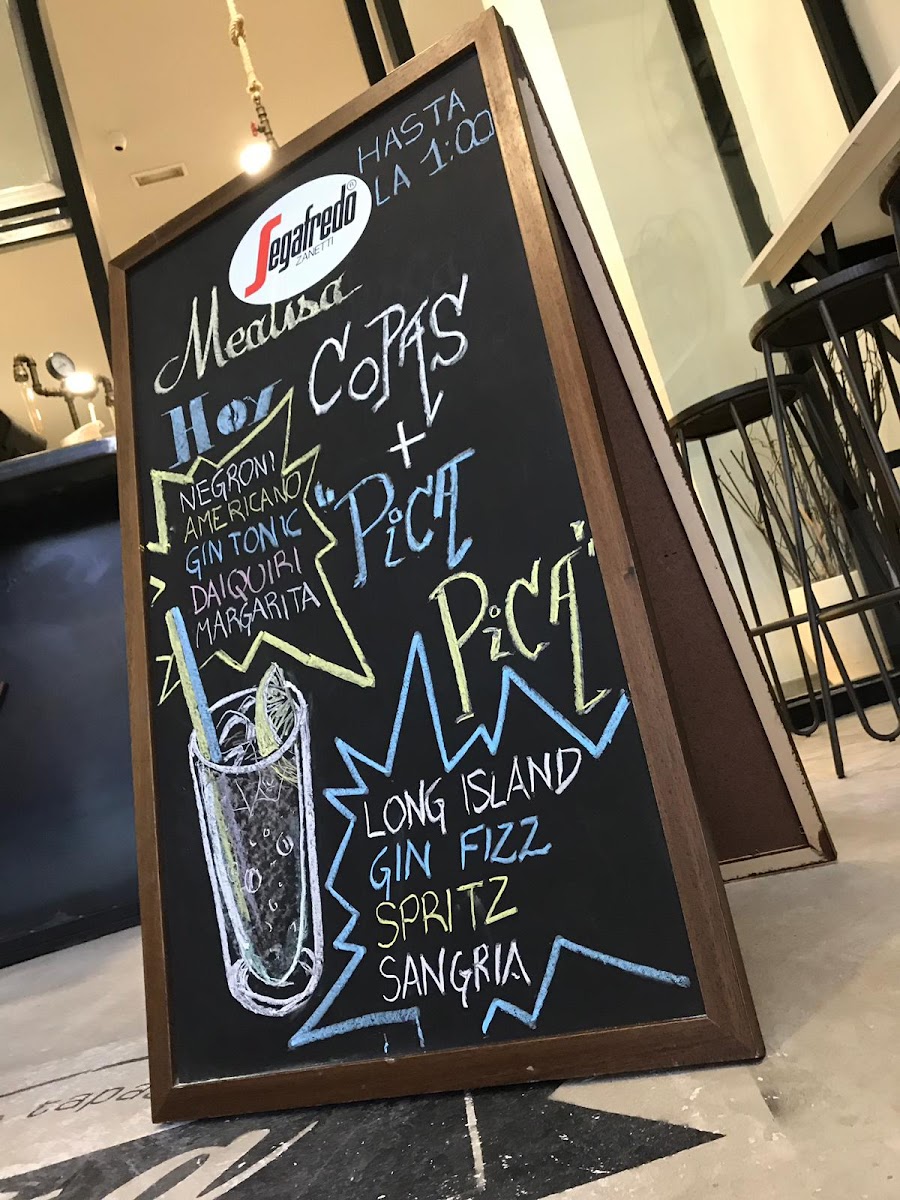 HASTA
LA 1:00
Segafredo®
ZANETTI
Mealisa
HOY
COPAS
+
"PiCA
PiCA"
NEGRONI
AMERICANO
GIN TONIC
DAIQUIRI
MARGARITA
LONG ISLAND
GIN FIZZ
SPRITZ
SANGRIA